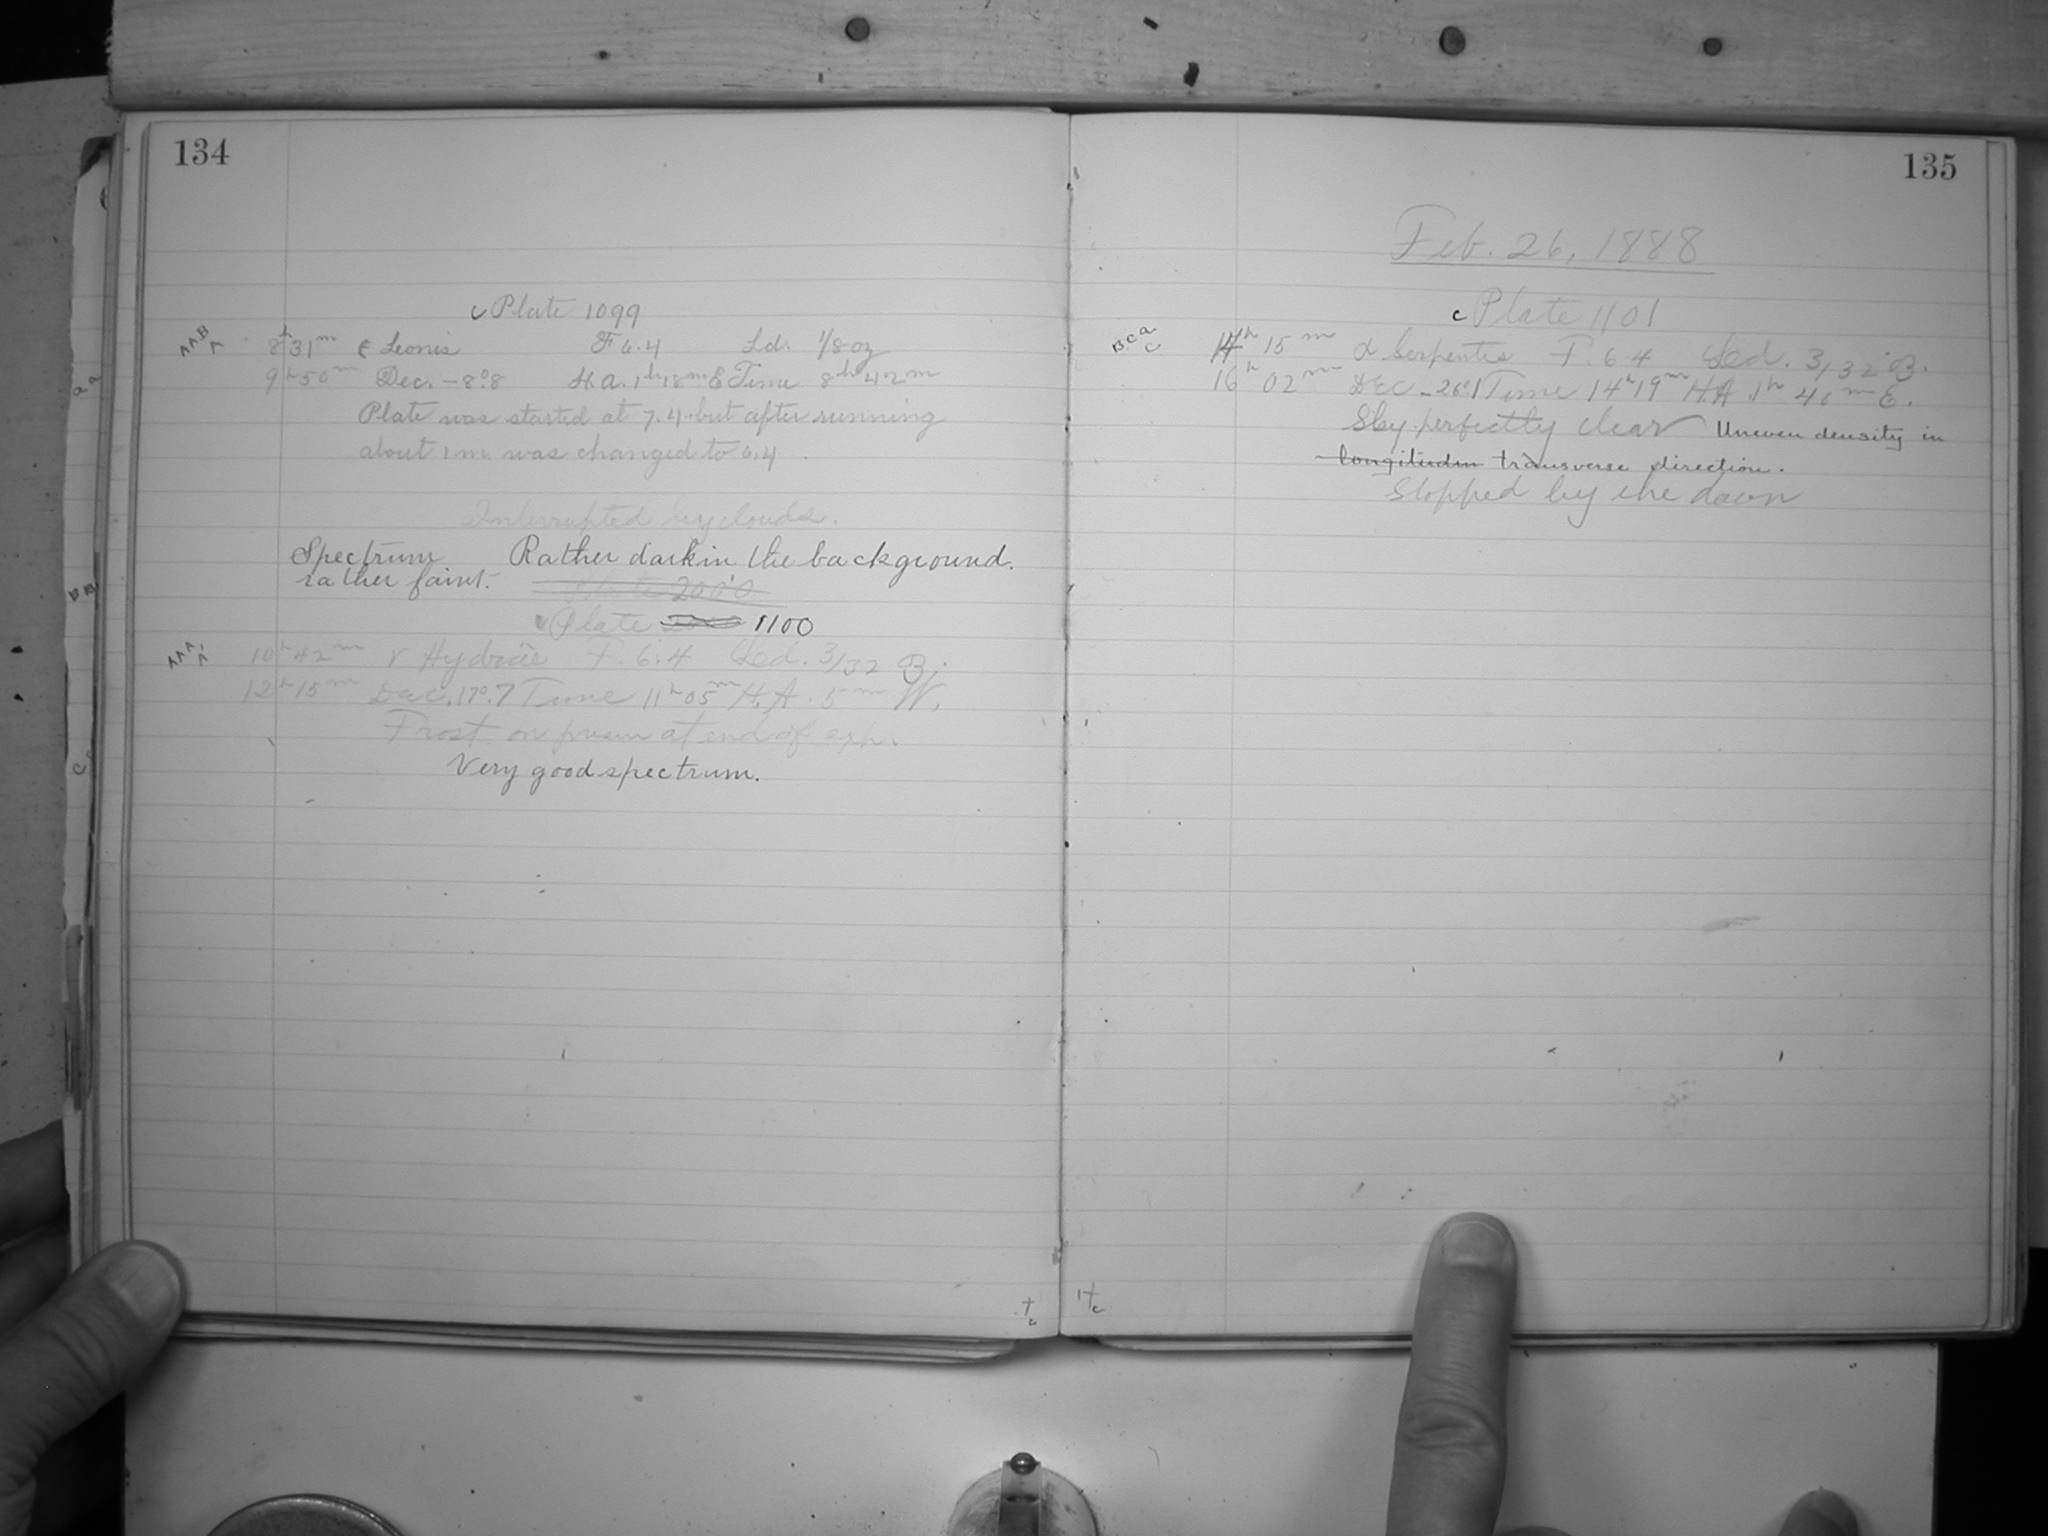 134
c Plate 1099
AAB
A
8h 31m ε Leonis F 6.4 Ld. 1/8 oz
9h 50m Dec. -8°.8 H.A. 1h 18m E Time 8h 42m
Plate was started at 7.4 but after running
about 1m was changed to 6.4
Interrupted by clouds.
Spectrum Rather dark in the background.
rather faint.
Plate 200°0
Plate 1100
AAA
A
10h 42m ν Hydrae F. 6.4 Sed. 3/32 B.
12h 15m Dec. 17°.7 Time 11h 05m H.A. 5m W.
Frost on prism at end of exp.
Very good spectrum.
135
Feb. 26, 1888
c Plate 1101
BCa
c
14h 15m α Serpentis F. 6.4 Sed. 3/32 B.
16h 02m Dec -26°1 Time 14h 19m H.A. 1h 41m E.
Sky perfectly clear Uneven density in
longitudin transverse direction.
Stopped by the dawn